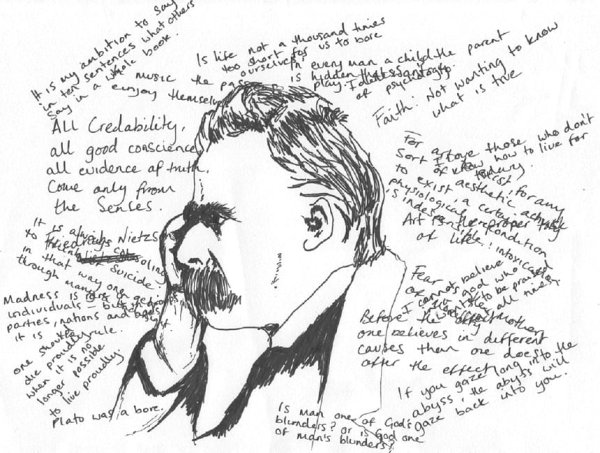 It is my ambition to say
in ten sentences what others
say in a whole book.
Is life not a thousand times
too short for us to bore
ourselves
in every man a child
is hidden that wants to
play.
the parent
of psychology
Faith: Not wanting to know
what is true
music the
enjoy themselves
All Credability,
all good conscience
all evidence of truth
Come only from
the Senses.
For those who don't
know how to live for
today.
For art to exist, for any
sort of aesthetic activity
to exist, a certain
physiological precondition
is indispensable:
intoxication
Art is the proper task
of life.
It is always
to
suicide:
in that way one
through many
Madness is rare in
individuals – but in groups,
parties, nations and ages
it is rule.
one should
die proudly
when it is no
longer possible
to live proudly
Plato was a bore.
Fear
I cannot believe
god who
to be praised
all the time.
Before the effect
one believes in different
causes than one does
after the effect
If you gaze long into the
abyss, the abyss will
gaze back into you.
Is man one of God's
blunders? or is god one
of man's blunders?